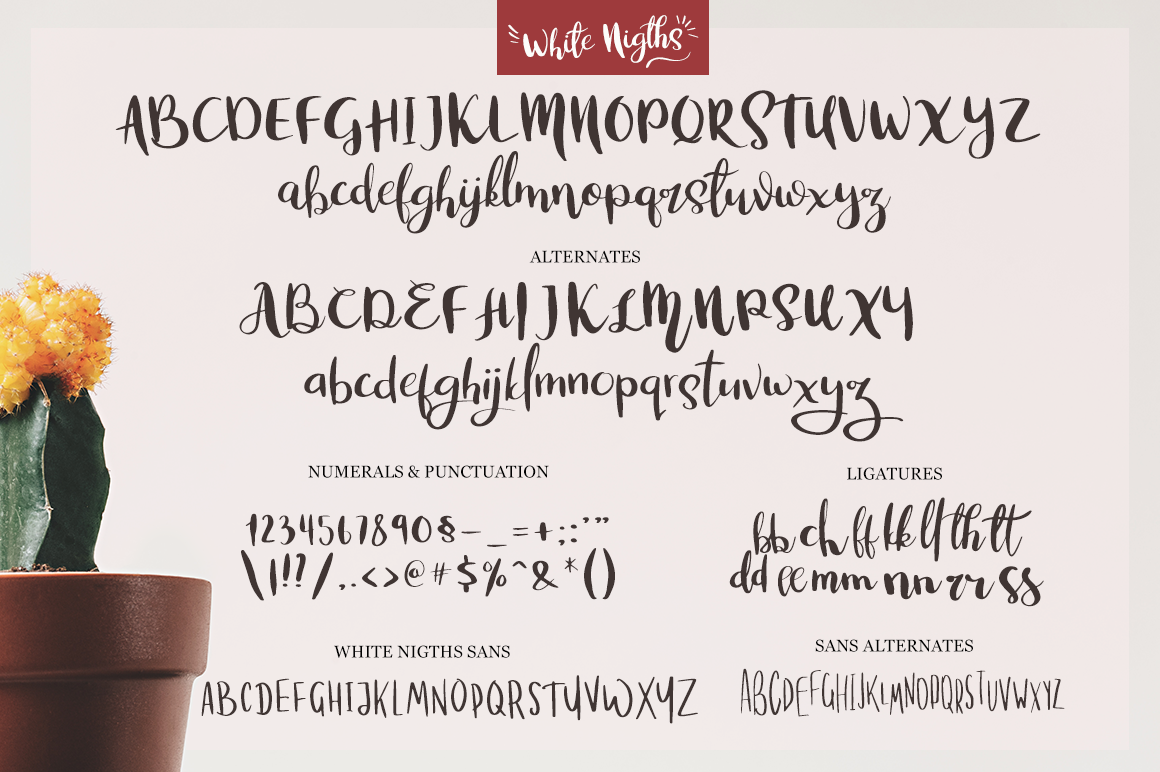 White Nigths
ABCDEFGHIJKLMNOPQRSTUVWXYZ
abcdefghijklmnopqrstuvwxyz
ALTERNATES
ABCDEFHIJKLMNRSUXY
abcdefghijklmnopqrstuvwxyz
NUMERALS & PUNCTUATION
1234567890§–_=+;:'"
\|!?/,.<>@#$%^&*()
LIGATURES
bb ch ff kk ll th tt
dd ee mm nn rr ss
WHITE NIGTHS SANS
ABCDEFGHIJKLMNOPQRSTUVWXYZ
SANS ALTERNATES
ABCDEFGHIJKLMNOPQRSTUVWXYZ